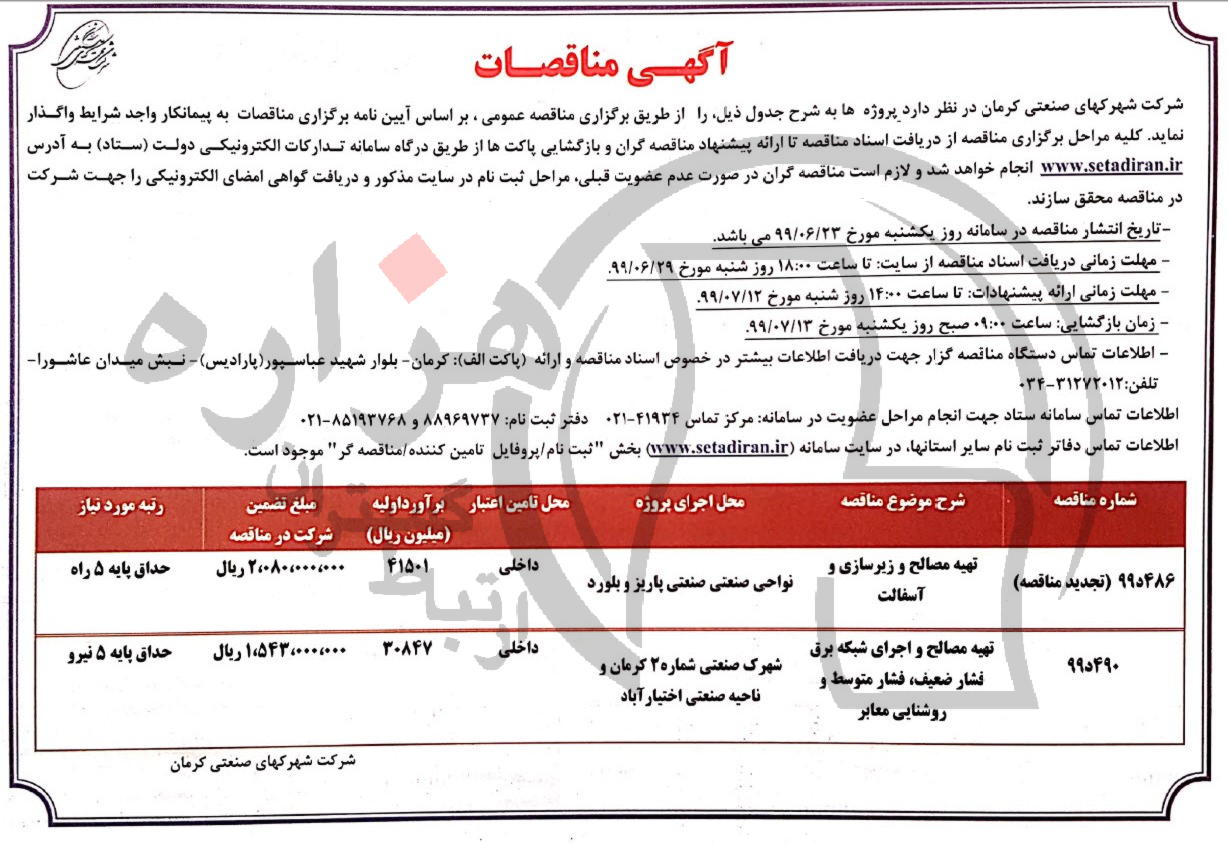 آگهی مناقصات
شرکت شهرکهای صنعتی کرمان در نظر دارد پروژه ها به شرح جدول ذیل، را از طریق برگزاری مناقصه عمومی ، بر اساس آیین نامه برگزاری مناقصات به پیمانکار واجد شرایط واگذار
نماید. کلیه مراحل برگزاری مناقصه از دریافت اسناد مناقصه تا ارائه پیشنهاد مناقصه گران و بازگشایی پاکت ها از طریق درگاه سامانه تدارکات الکترونیکی دولت (ستاد) به آدرس
www.setadiran.ir انجام خواهد شد و لازم است مناقصه گران در صورت عدم عضویت قبلی، مراحل ثبت نام در سایت مذکور و دریافت گواهی امضای الکترونیکی را جهت شرکت
در مناقصه محقق سازند.
-تاریخ انتشار مناقصه در سامانه روز یکشنبه مورخ ۹۹/۰۶/۲۳ می باشد.
- مهلت زمانی دریافت اسناد مناقصه از سایت: تا ساعت ۱۸:۰۰ روز شنبه مورخ ۹۹/۰۶/۲۹.
- مهلت زمانی ارائه پیشنهادات: تا ساعت ۱۴:۰۰ روز شنبه مورخ ۹۹/۰۷/۱۲.
- زمان بازگشایی: ساعت ۰۹:۰۰ صبح روز یکشنبه مورخ ۹۹/۰۷/۱۳.
- اطلاعات تماس دستگاه مناقصه گزار جهت دریافت اطلاعات بیشتر در خصوص اسناد مناقصه و ارائه (پاکت الف): کرمان- بلوار شهید عباسپور(پارادیس)- نبش میدان عاشورا-
تلفن:۳۱۲۷۲۰۱۲-۰۳۴
اطلاعات تماس سامانه ستاد جهت انجام مراحل عضویت در سامانه: مرکز تماس ۴۱۹۳۴-۰۲۱ دفتر ثبت نام: ۸۸۹۶۹۷۳۷ و ۸۵۱۹۳۷۶۸-۰۲۱
اطلاعات تماس دفاتر ثبت نام سایر استانها، در سایت سامانه (www.setadiran.ir) بخش "ثبت نام/پروفایل تامین کننده/مناقصه گر" موجود است.
شماره مناقصه شرح موضوع مناقصه محل اجرای پروژه محل تامین اعتبار برآورداولیه (میلیون ریال) مبلغ تضمین شرکت در مناقصه رتبه مورد نیاز
۹۹د۴۸۶ (تجدید مناقصه) تهیه مصالح و زیرسازی و آسفالت نواحی صنعتی صنعتی پاریز و بلورد داخلی ۴۱۵۰۱ ۲،۰۸۰،۰۰۰،۰۰۰ ریال حداقل پایه ۵ راه
۹۹د۴۹۰ تهیه مصالح و اجرای شبکه برق فشار ضعیف، فشار متوسط و روشنایی معابر شهرک صنعتی شماره۲ کرمان و ناحیه صنعتی اختیارآباد داخلی ۳۰۸۴۷ ۱،۵۴۳،۰۰۰،۰۰۰ ریال حداقل پایه ۵ نیرو
شرکت شهرکهای صنعتی کرمان
هزاره
گسترش
ارتباط